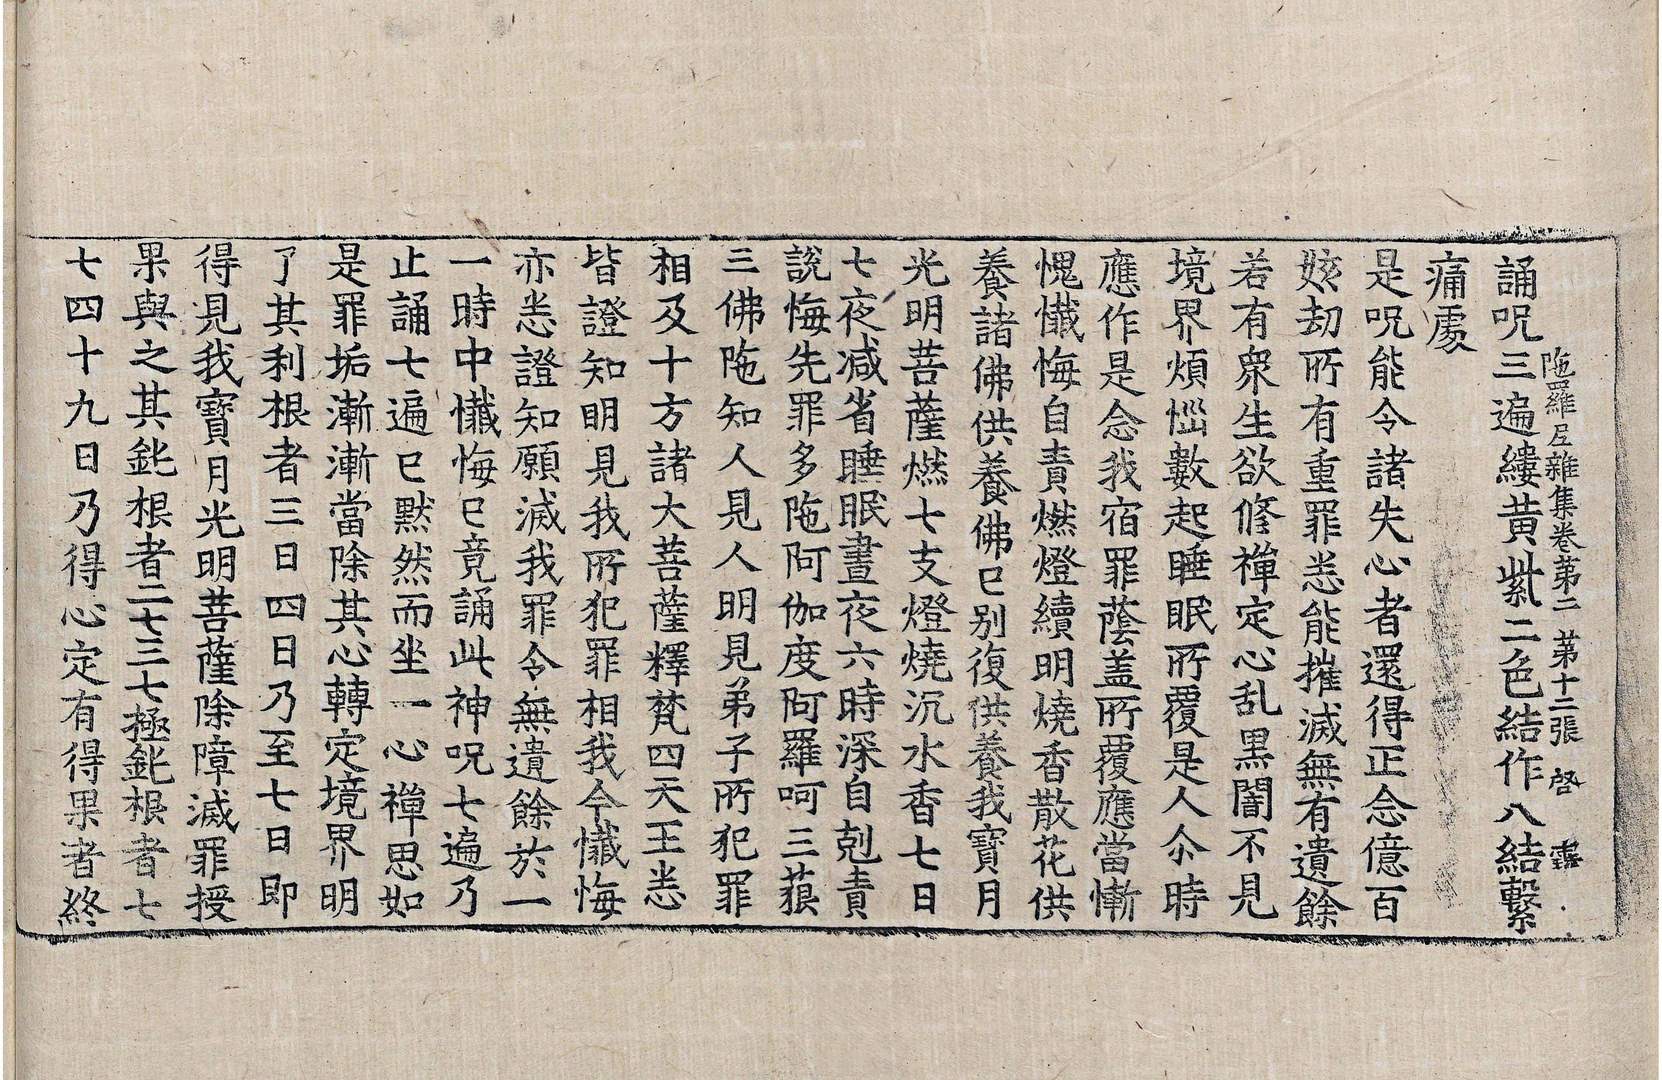 陁羅尼雜集卷苐二 苐十二張 啓
誦呪三遍縷黃紫二色結作八結繫
痛處
是呪能令諸失心者還得正念億百
姟劫所有重罪悉能摧滅無有遺餘
若有衆生欲修禪定心乱黒闇不見
境界煩惱數起睡眠所覆是人尒時
應作是念我宿罪蔭盖所覆應當慚
愧懺悔自責燃燈續明燒香散花供
養諸佛供養佛已別復供養我寶月
光明菩薩燃七支燈燒沉水香七日
七夜减省睡眠晝夜六時深自剋責
說悔先罪多陁阿伽度阿羅呵三藐
三佛陁知人見人明見弟子所犯罪
相及十方諸大菩薩釋梵四天王悉
皆證知明見我所犯罪相我今懺悔
亦悉證知願滅我罪令無遺餘於一
一時中懺悔已竟誦此神呪七遍乃
止誦七遍已默然而坐一心禪思如
是罪垢漸漸當除其心轉定境界明
了其利根者三日四日乃至七日即
得見我寶月光明菩薩除障滅罪授
果與之其鈍根者二七三七極鈍根者七
七四十九日乃得心定有得果者終